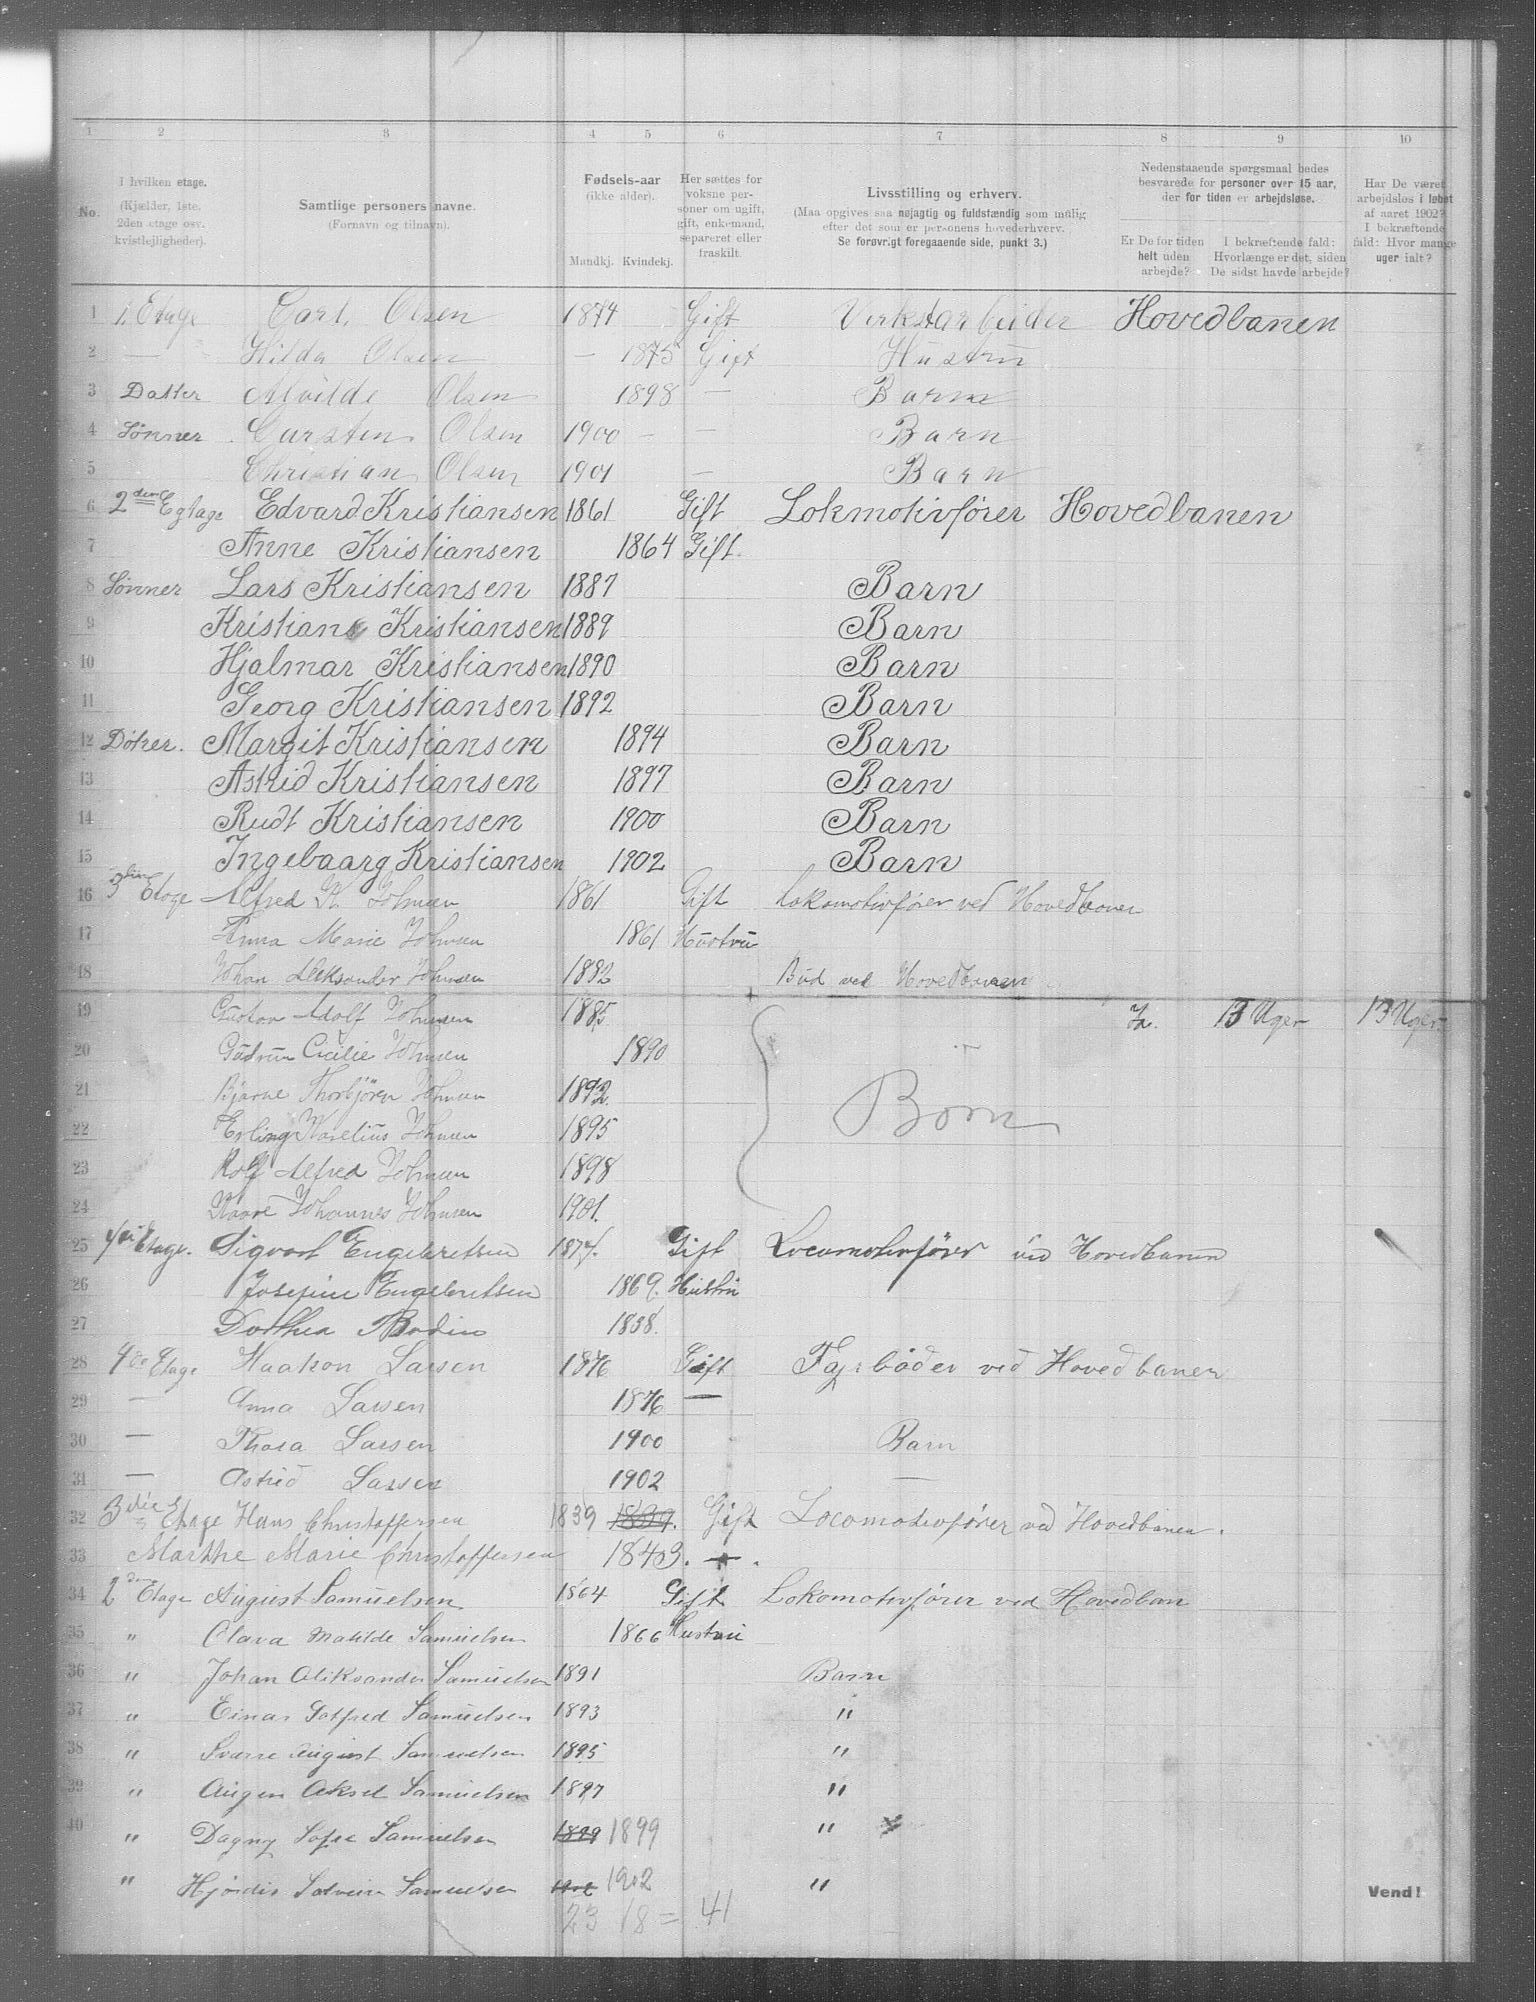 1 2 3 4 5 6 7 8 9 10
No.
I hvilken etage.
(Kjælder, 1ste, 2den etage osv. kvistlejligheder).
Samtlige personers navne.
(Fornavn og tilnavn).
Fødsels-aar
(ikke alder).
Mandkj. Kvindekj.
Her sættes for voksne personer om ugift, gift, enkemand, separeret eller fraskilt.
Livsstilling og erhverv.
(Maa opgives saa nøjagtig og fuldstændig som mulig efter det som er personens hovederhverv.
Se forøvrigt foregaaende side, punkt 3.)
Nedenstaaende spørgsmaal bedes besvarede for personer over 15 aar, der for tiden er arbejdsløse.
Er De for tiden helt uden arbejde?
I bekræftende fald: Hvorlænge er det, siden De sidst havde arbejde?
Har De været arbejdsløs i løbet af aaret 1902? I bekræftende fald: Hvor mange uger ialt?
1 1. Etage Carl Olsen 1874 Gift Verkstarbeider Hovedbanen
2 — Hilda Olsen — 1875 Gift Hustru
3 Datter Alvilde Olsen 1898 — Barn
4 Sønner Carsten Olsen 1900 — — Barn
5 Christian Olsen 1901 — Barn
6 2den Egtage Edvard Kristiansen 1861 Gift Lokmotivfører Hovedbanen
7 Anne Kristiansen 1864 Gift.
8 Sønner Lars Kristiansen 1887 Barn
9 Kristian Kristiansen 1889 Barn
10 Hjalmar Kristiansen 1890 Barn
11 Georg Kristiansen 1892 Barn
12 Døtrer. Margit Kristiansen 1894 Barn
13 Astrid Kristiansen 1897 Barn
14 Rudt Kristiansen 1900 Barn
15 Ingebaarg Kristiansen 1902 Barn
16 3die Etage Alfred K. Johnsen 1861 Gift Lokomotivfører ved Hovedbanen
17 Anna Marie Johnsen 1861 Hustru
18 Johan Aleksander Johnsen 1882 Bud ved Hovedbanen
19 Gustav Adolf Johnsen 1885 Ja. 13 Uger 13 Uger
20 Gudrun Cicilie Johnsen 1890
21 Bjarne Thorbjören Johnsen 1892 Börn
22 Erling Kornelius Johnsen 1895
23 Rolf Alfred Johnsen 1898
24 Kaare Johannes Johnsen 1901.
25 Etage. Sigvart Engebretsen 1874. Gift Locomotivfører ved Hovedbanen
26 Josefine Engebretsen 1869. Hustru
27 Dorthea Bodin 1838.
28 4de Etage Haakon Larsen 1876 Gift Fyrbøder ved Hovedbanen
29 — Anna Larsen 1876 —
30 — Thora Larsen 1900 Barn
31 — Astrid Larsen 1902 —
32 3die Etage Hans Christoffersen 1839 1839. Gift Locomotivfører ved Hovedbanen.
33 Marthe Marie Christoffersen 1843. —.
34 2den Etage August Samuelsen 1864 Gift Lokomotivfører ved Hovedban
35 " Olava Matilde Samuelsen 1866 Hustru
36 " Johan Aliksander Samuelsen 1891 Barn
37 " Einar Gotfred Samuelsen 1893 "
38 " Svarre August Samuelsen 1895 "
39 " Augen Aksel Samuelsen 1897 "
40 " Dagny Sofie Samuelsen 1899 1899 "
" Hjördis Solveien Samuelsen 1902 1902 "
Vend!
23 18 = 41